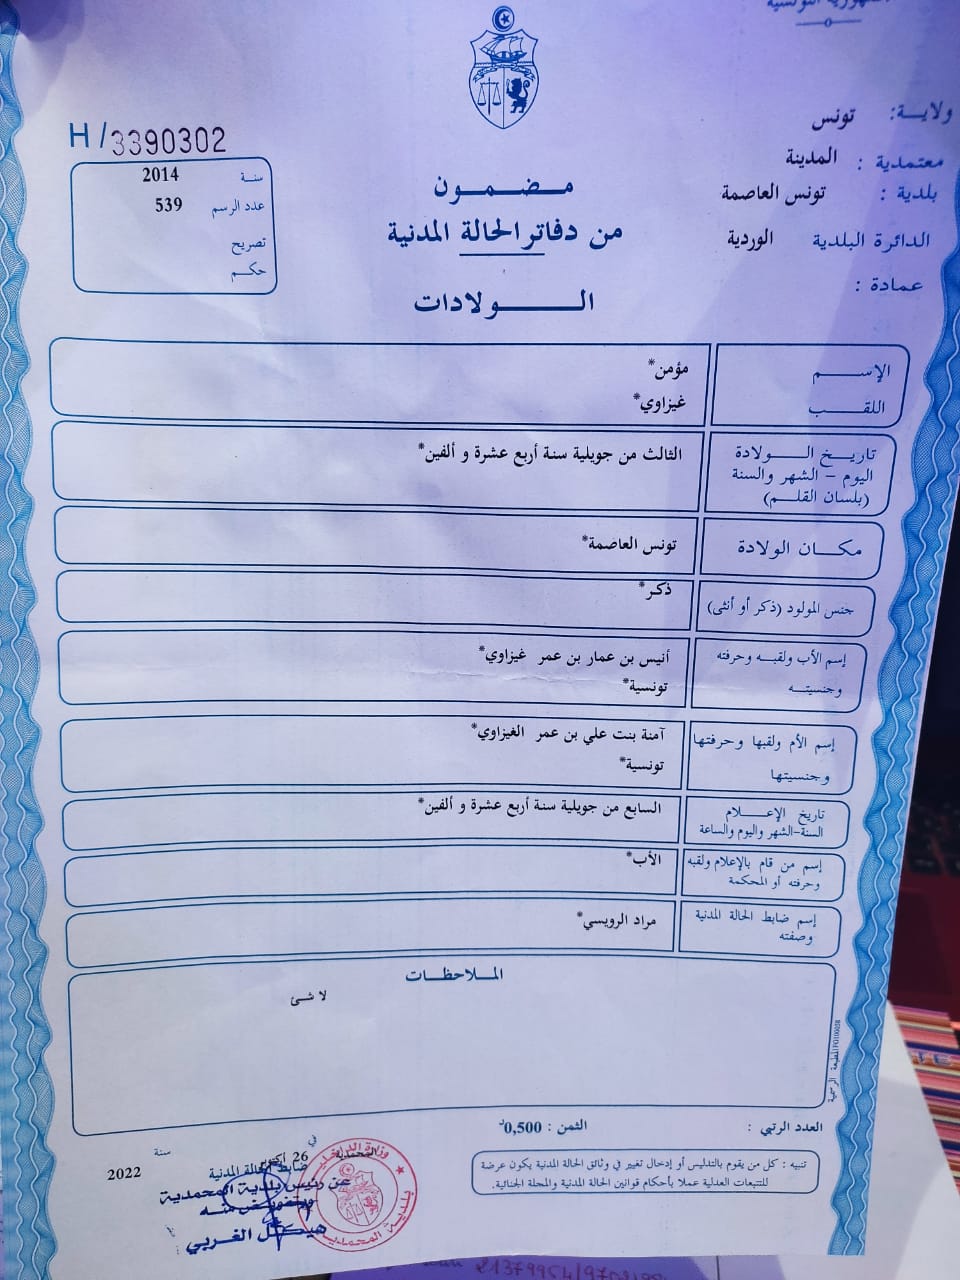 الجمهورية التونسية
ولايـــة: تونس
معتمدية : المدينة
بلدية : تونس العاصمة
الدائرة البلدية الوردية
عمادة :
H/3390302
سنـة 2014
عدد الرسم 539
تصريح
حكـم
مـضـمـــون
من دفاتر الحالة المدنية
الــــــولادات
الإســـــم مؤمن*
اللقـــب غيزاوي*
تاريـخ الـــــولادة
اليوم - الشهر والسنة
(بلسان القلـم)
الثالث من جويلية سنة أربع عشرة و ألفين*
مكــان الولادة تونس العاصمة*
جنس المولود (ذكر أو أنثى) ذكر*
إسم الأب ولقبـه وحرفته أنيس بن عمار بن عمر غيزاوي*
وجنسيتــه تونسية*
إسم الأم ولقبها وحرفتها آمنة بنت علي بن عمر الغيزاوي*
وجنسيتها تونسية*
تاريخ الإعــــلام
السنة-الشهر واليوم والساعة
السابع من جويلية سنة أربع عشرة و ألفين*
إسم من قام بالإعلام ولقبه
وحرفته أو المحكمة
الأب*
إسم ضابط الحالة المدنية
وصفته
مراد الرويسي*
المـلاحظـات
لا شئ
المطبعة الرسمية
العدد الرتبي :
الثمن : 0,500د
تنبيه : كل من يقوم بالتدليس أو إدخال تغيير في وثائق الحالة المدنية يكون عرضة
للتتبعات العدلية عملا بأحكام قوانين الحالة المدنية والمجلة الجنائية.
المحمدية في 26 سنة 2022
ضابط الحالة المدنية
عن رئيس بلدية المحمدية
وبتفويض منه
هيكل الغربي
وزارة الداخلية
بلدية المحمدية